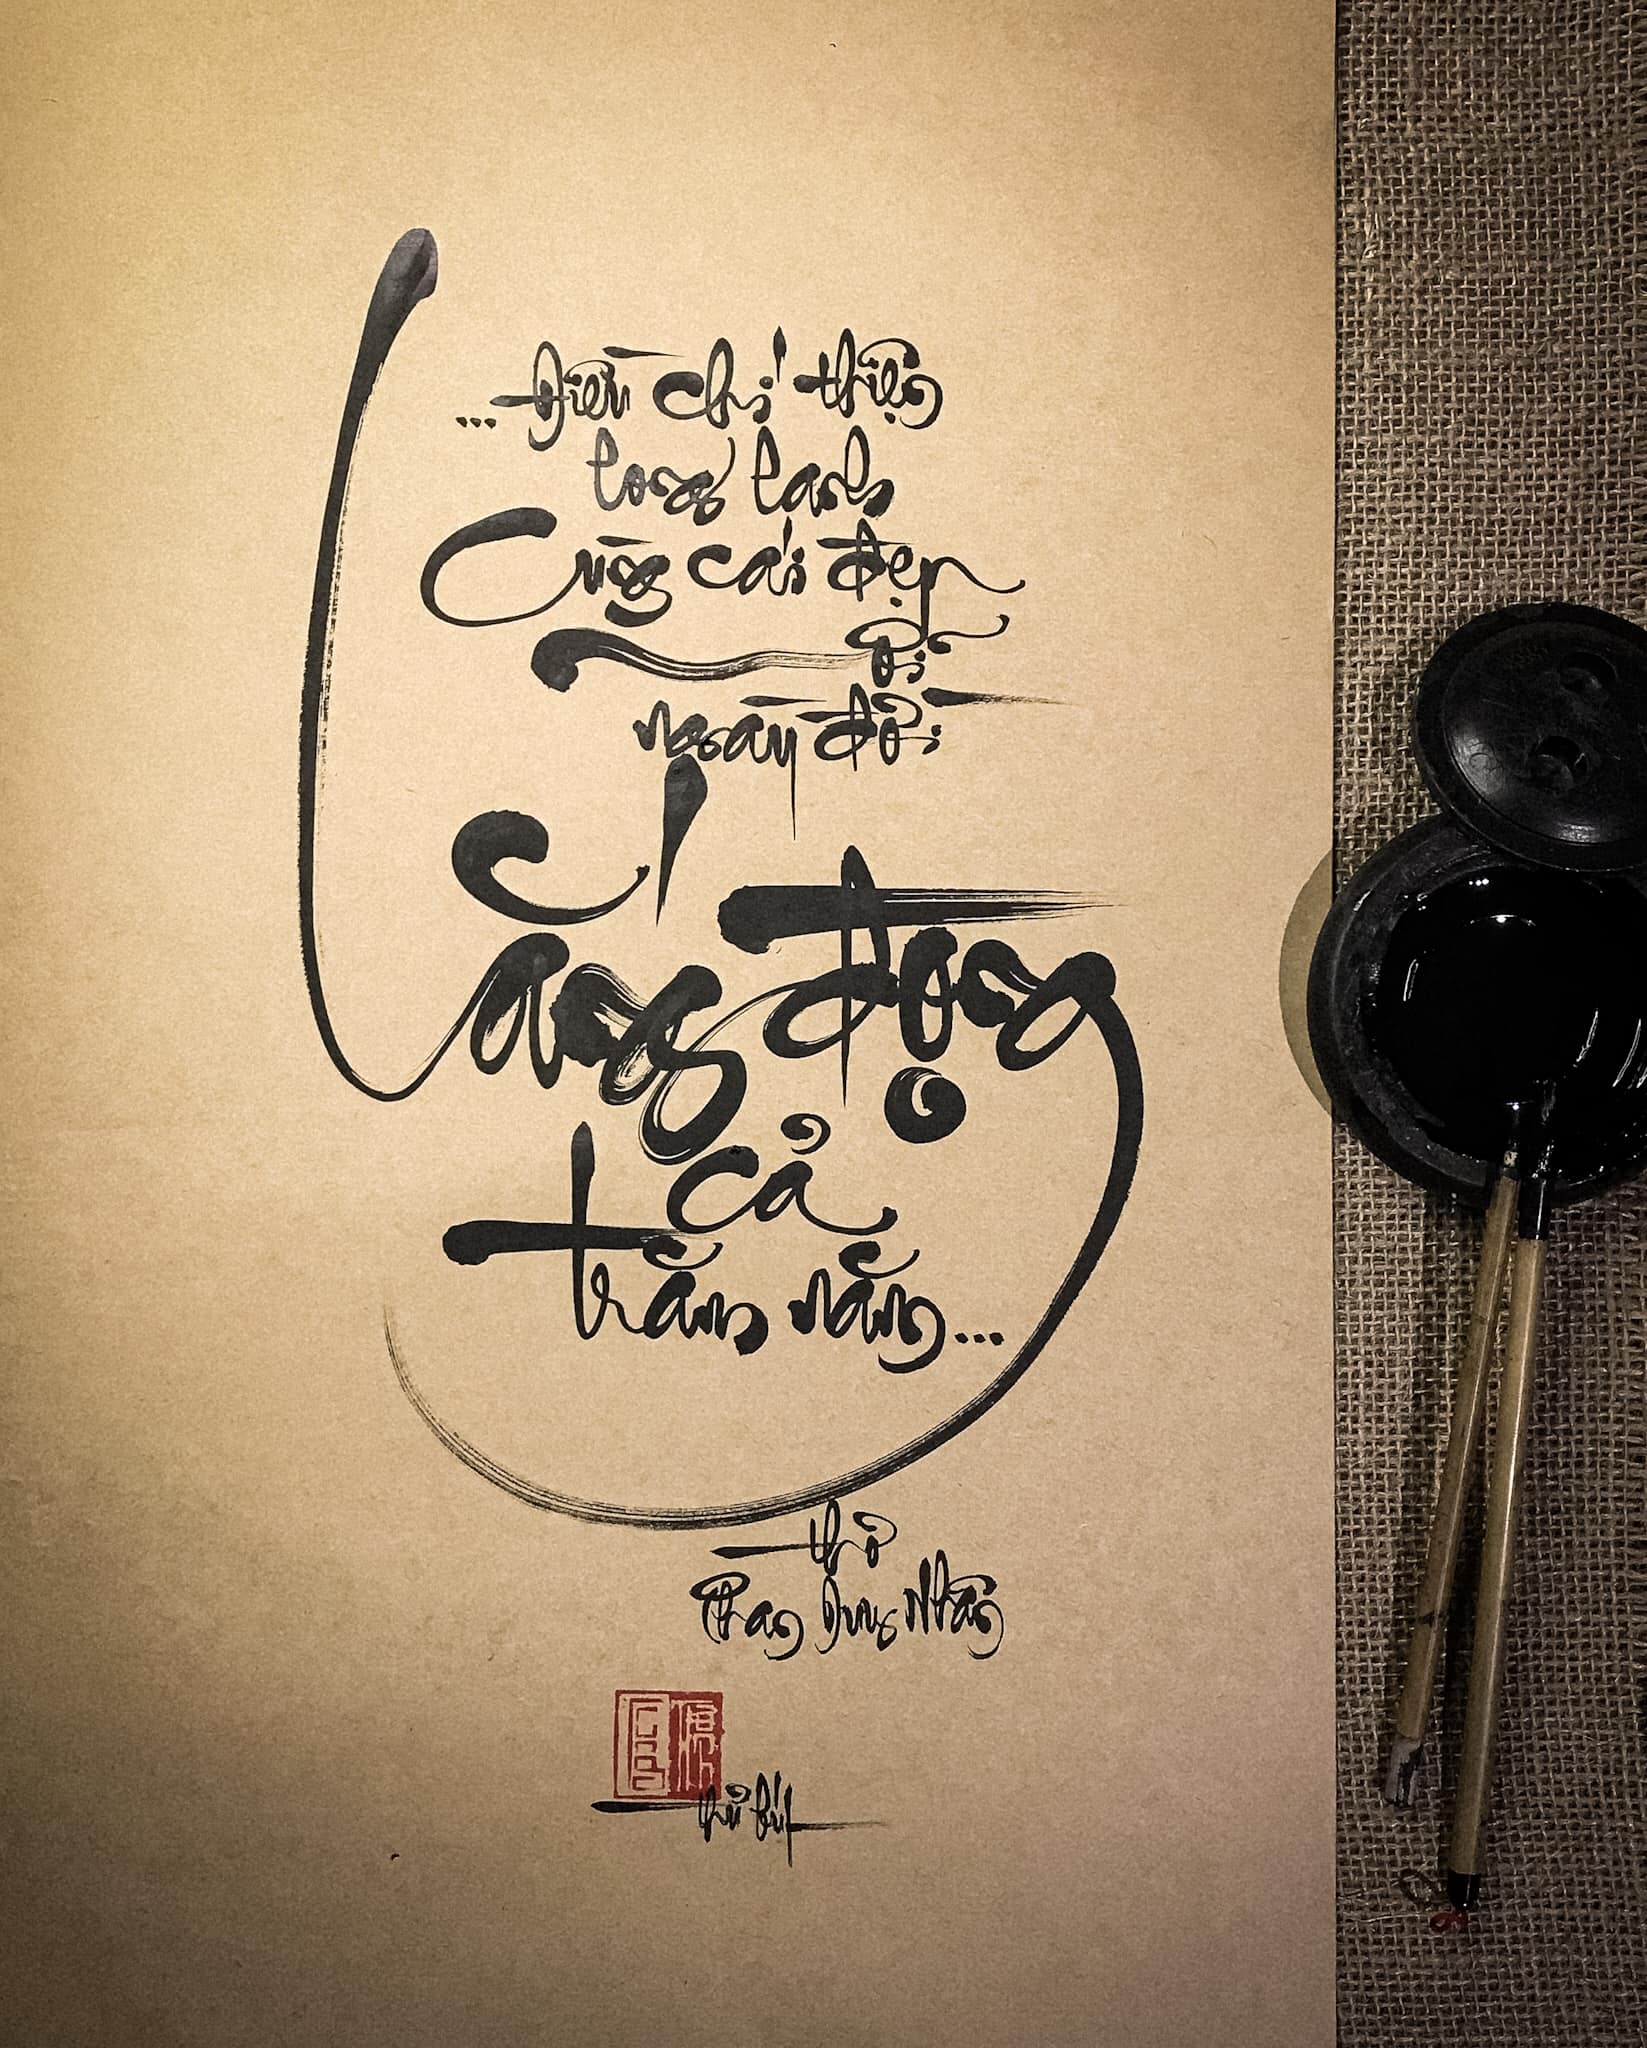 ...Điều chí thiện
long lanh
Cùng cái đẹp
Mỗi
ngày đời
Lắng đọng
cả
trăm năm...
thơ
Phan Duy Nhân
thủ bút